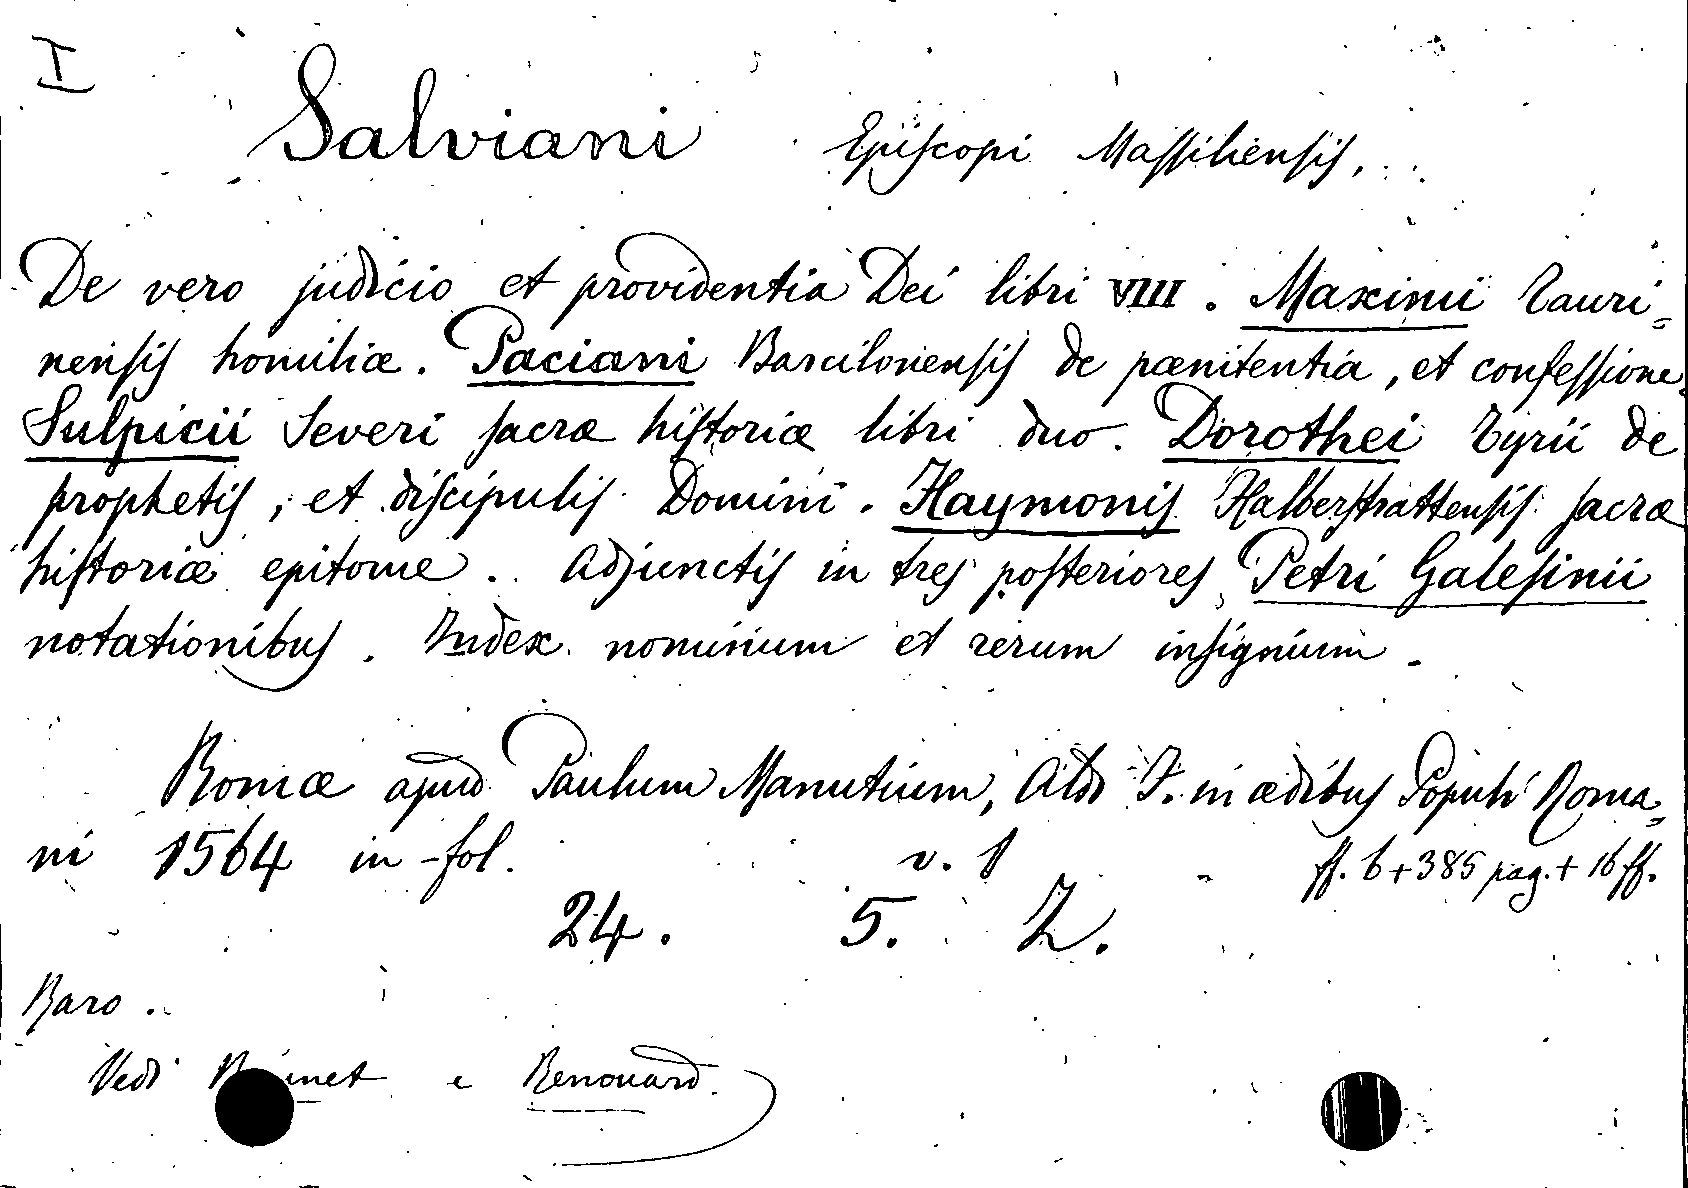 I
Salviani Episcopi Massiliensis,
De vero judicio et providentia Dei libri VIII. Maximi Tauri=
nensis homiliæ. Paciani Barcilonensis de pænitentia, et confessione.
Sulpicii Severi sacræ historiæ libri duo. Dorothei Tyrii de
prophetis, et discipulis Domini. Haymonis Halberstrattensis sacræ
historiæ epitome. Adjunctis in tres posteriores Petri Galesinii
notationibus. Index nominum et rerum insignium.
Romæ apud Paulum Manutium, Aldi F. in ædibus Populi Roma=
ni 1564 in-fol. v. 1 ff. 6+385 pag.+16 ff.
24. 5. Z.
Raro.
Vedi e Renouard.